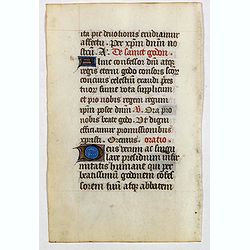 ita pie deuotionis erudiamur
affectu. Per xpm dnm no
stru. A. De sancte godon.
Alme confessor dni atq;
regis eterni godo consors ser
concius celestiu exaudi pres
tuor sume vota supplicum
et pro nobis regem regum
xpm posce dnm. V. Ora pro
nobis beate godo. Vt digni
efficiamur promissionibus
xpristi. Oremus. oratio.
Deus verum ac singu
lare presidium infir
mitatis humane qui per
beatissimu godonem cofes
sorem tuu atq; abbatem